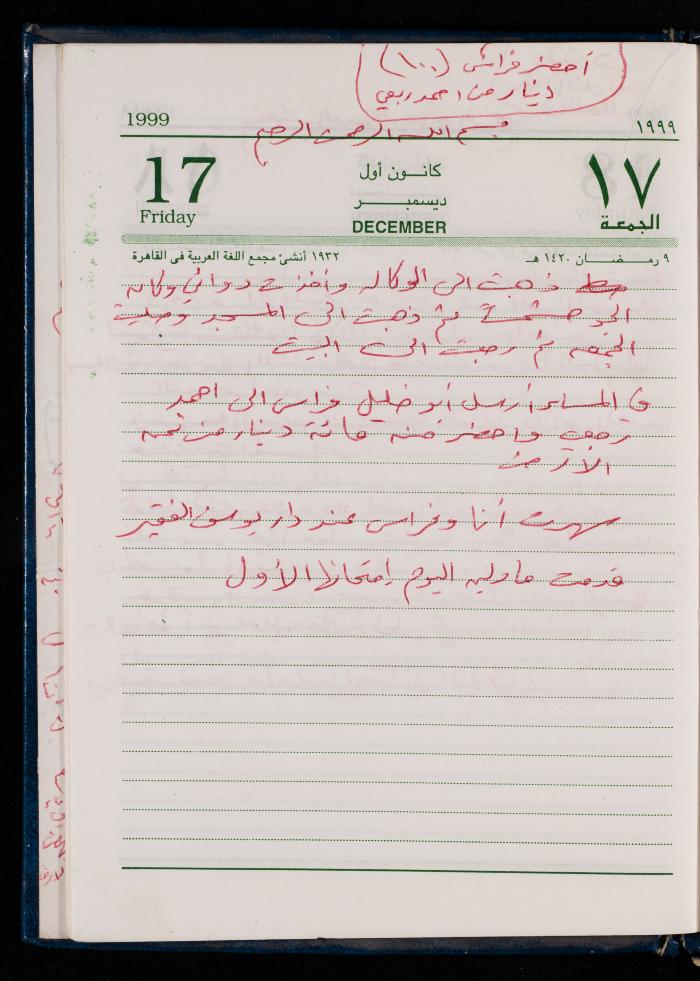 أحضر فراس (١٠٠)
دينار من احمد ربعي
1999
١٩٩٩
بسم الله الرحمن الرحيم
17
Friday
كانون أول
ديسمبر
DECEMBER
١٧
الجمعة
٩ رمضان ١٤٢٠ هـ
١٩٣٢ أنشئ مجمع اللغة العربية فى القاهرة
ذهبت الى الوكاله وأخذت دوائي وكان
الجو مشمساً ثم ذهبت الى المسجد وصليت
الجمعه ثم رجعت الى البيت
في المساء أرسل أبو خليل فراس الى احمد
ربعي واحضر منه مائة دينار من ثمن
الارض
سهرت أنا وفراس عند دار يوسف الفقير
قدمت مادلين اليوم إمتحانها الأول